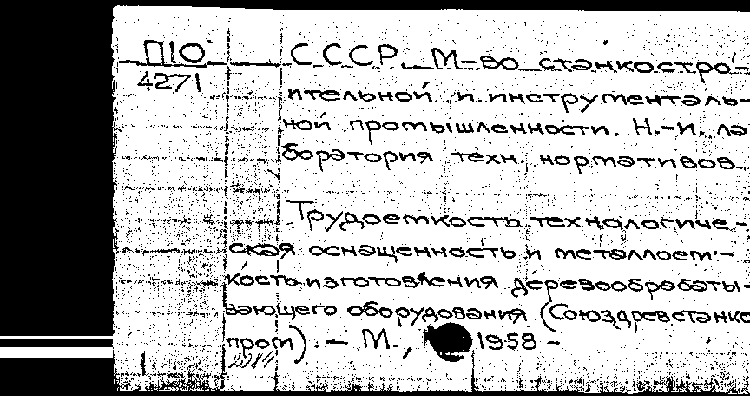 П10 СССР. М-во станкостро-
4271
ительной и инструменталь-
ной промышленности. Н.-и. ла
боратория техн. нормативов.
Трудоемкость технологиче-
ская оснащенность и металлоем-
кость изготовления деревообрабаты-
вающего оборудования (Союздревстанко
пром). - М., 1958 -